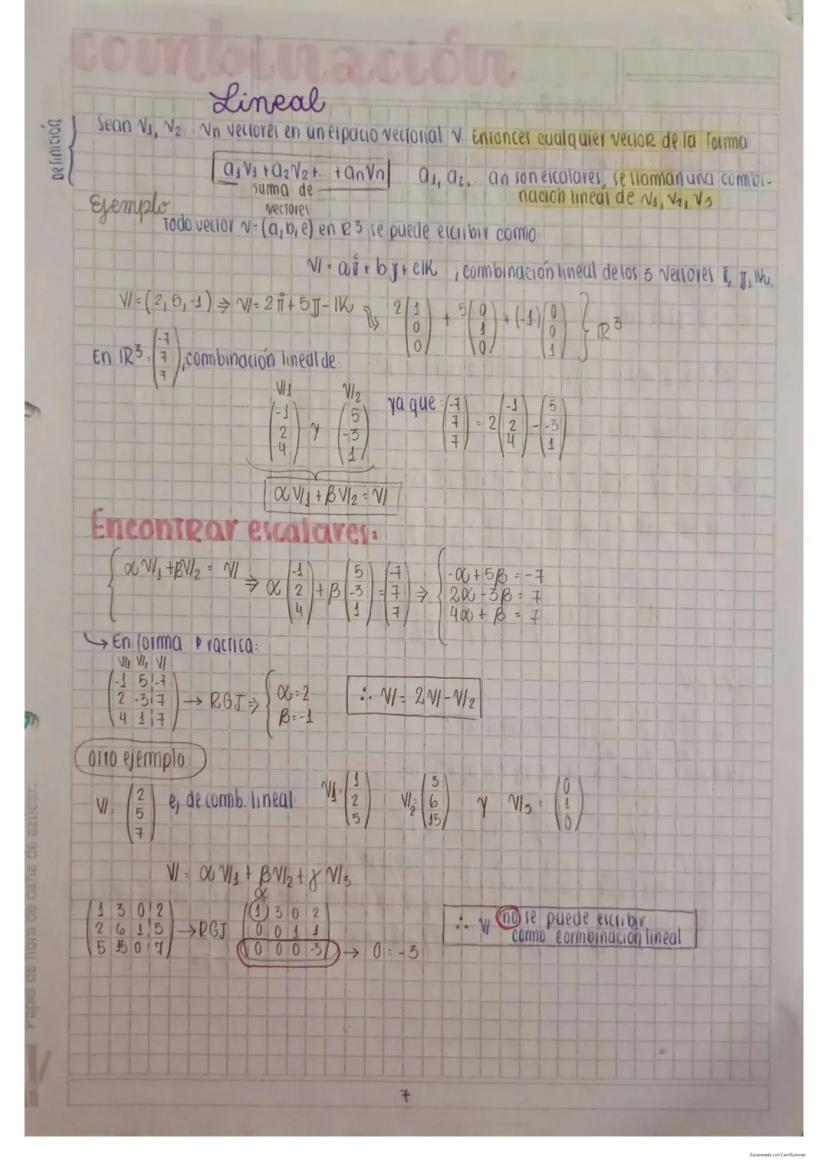 combinación
Lineal
Definición
Sean V1, V2 Vn vectores en un espacio vectorial V. Entonces cualquier vector de la forma
a1V1 + a2V2 + + anVn a1, a2, an son escalares, se llaman una combi-
suma de vectores
nación lineal de V1, V2, V3
Ejemplo
Todo vector V = (a, b, c) en R3 se puede escribir como
V = ai + bj + ck ; combinación lineal de los 3 vectores i, j, k
V = (2, 5, -1) ⇒ V = 2i + 5j - k
2 (1 0 0) + 5 (0 1 0) + (-1) (0 0 1) } R3
En R3 (-7 7 7), combinación lineal de
V1 (-1 2 4) y V2 (5 -3 1) ya que: (-7 7 7) = 2 (-1 2 4) - (5 -3 1)
αV1 + βV2 = V
Encontrar escalares:
{ αV1 + βV2 = V ⇒ α (-1 2 4) + β (5 -3 1) = (-7 7 7) ⇒ { -α + 5β = -7
2α - 3β = 7
4α + β = 7
↳ En forma practica:
V1 V2 V
-1 5 | -7
2 -3 | 7 → RGJ ⇒ { α = 2 ∴ V = 2V1 - V2
4 1 | 7 β = -1
otro ejemplo
V = (2 5 7) es de comb. lineal V1 = (1 2 5) V2 = (3 6 15) y V3 = (0 1 0)
V = αV1 + βV2 + γV3
α
1 3 0 | 2 1 3 0 2
2 6 1 | 5 → RGJ 0 0 1 1
5 15 0 | 7 0 0 0 -3 → 0 = -3
∴ V no se puede escribir
como combinación lineal
Papel de fibra de caña de azúcar.
7
Escaneado con CamScanner